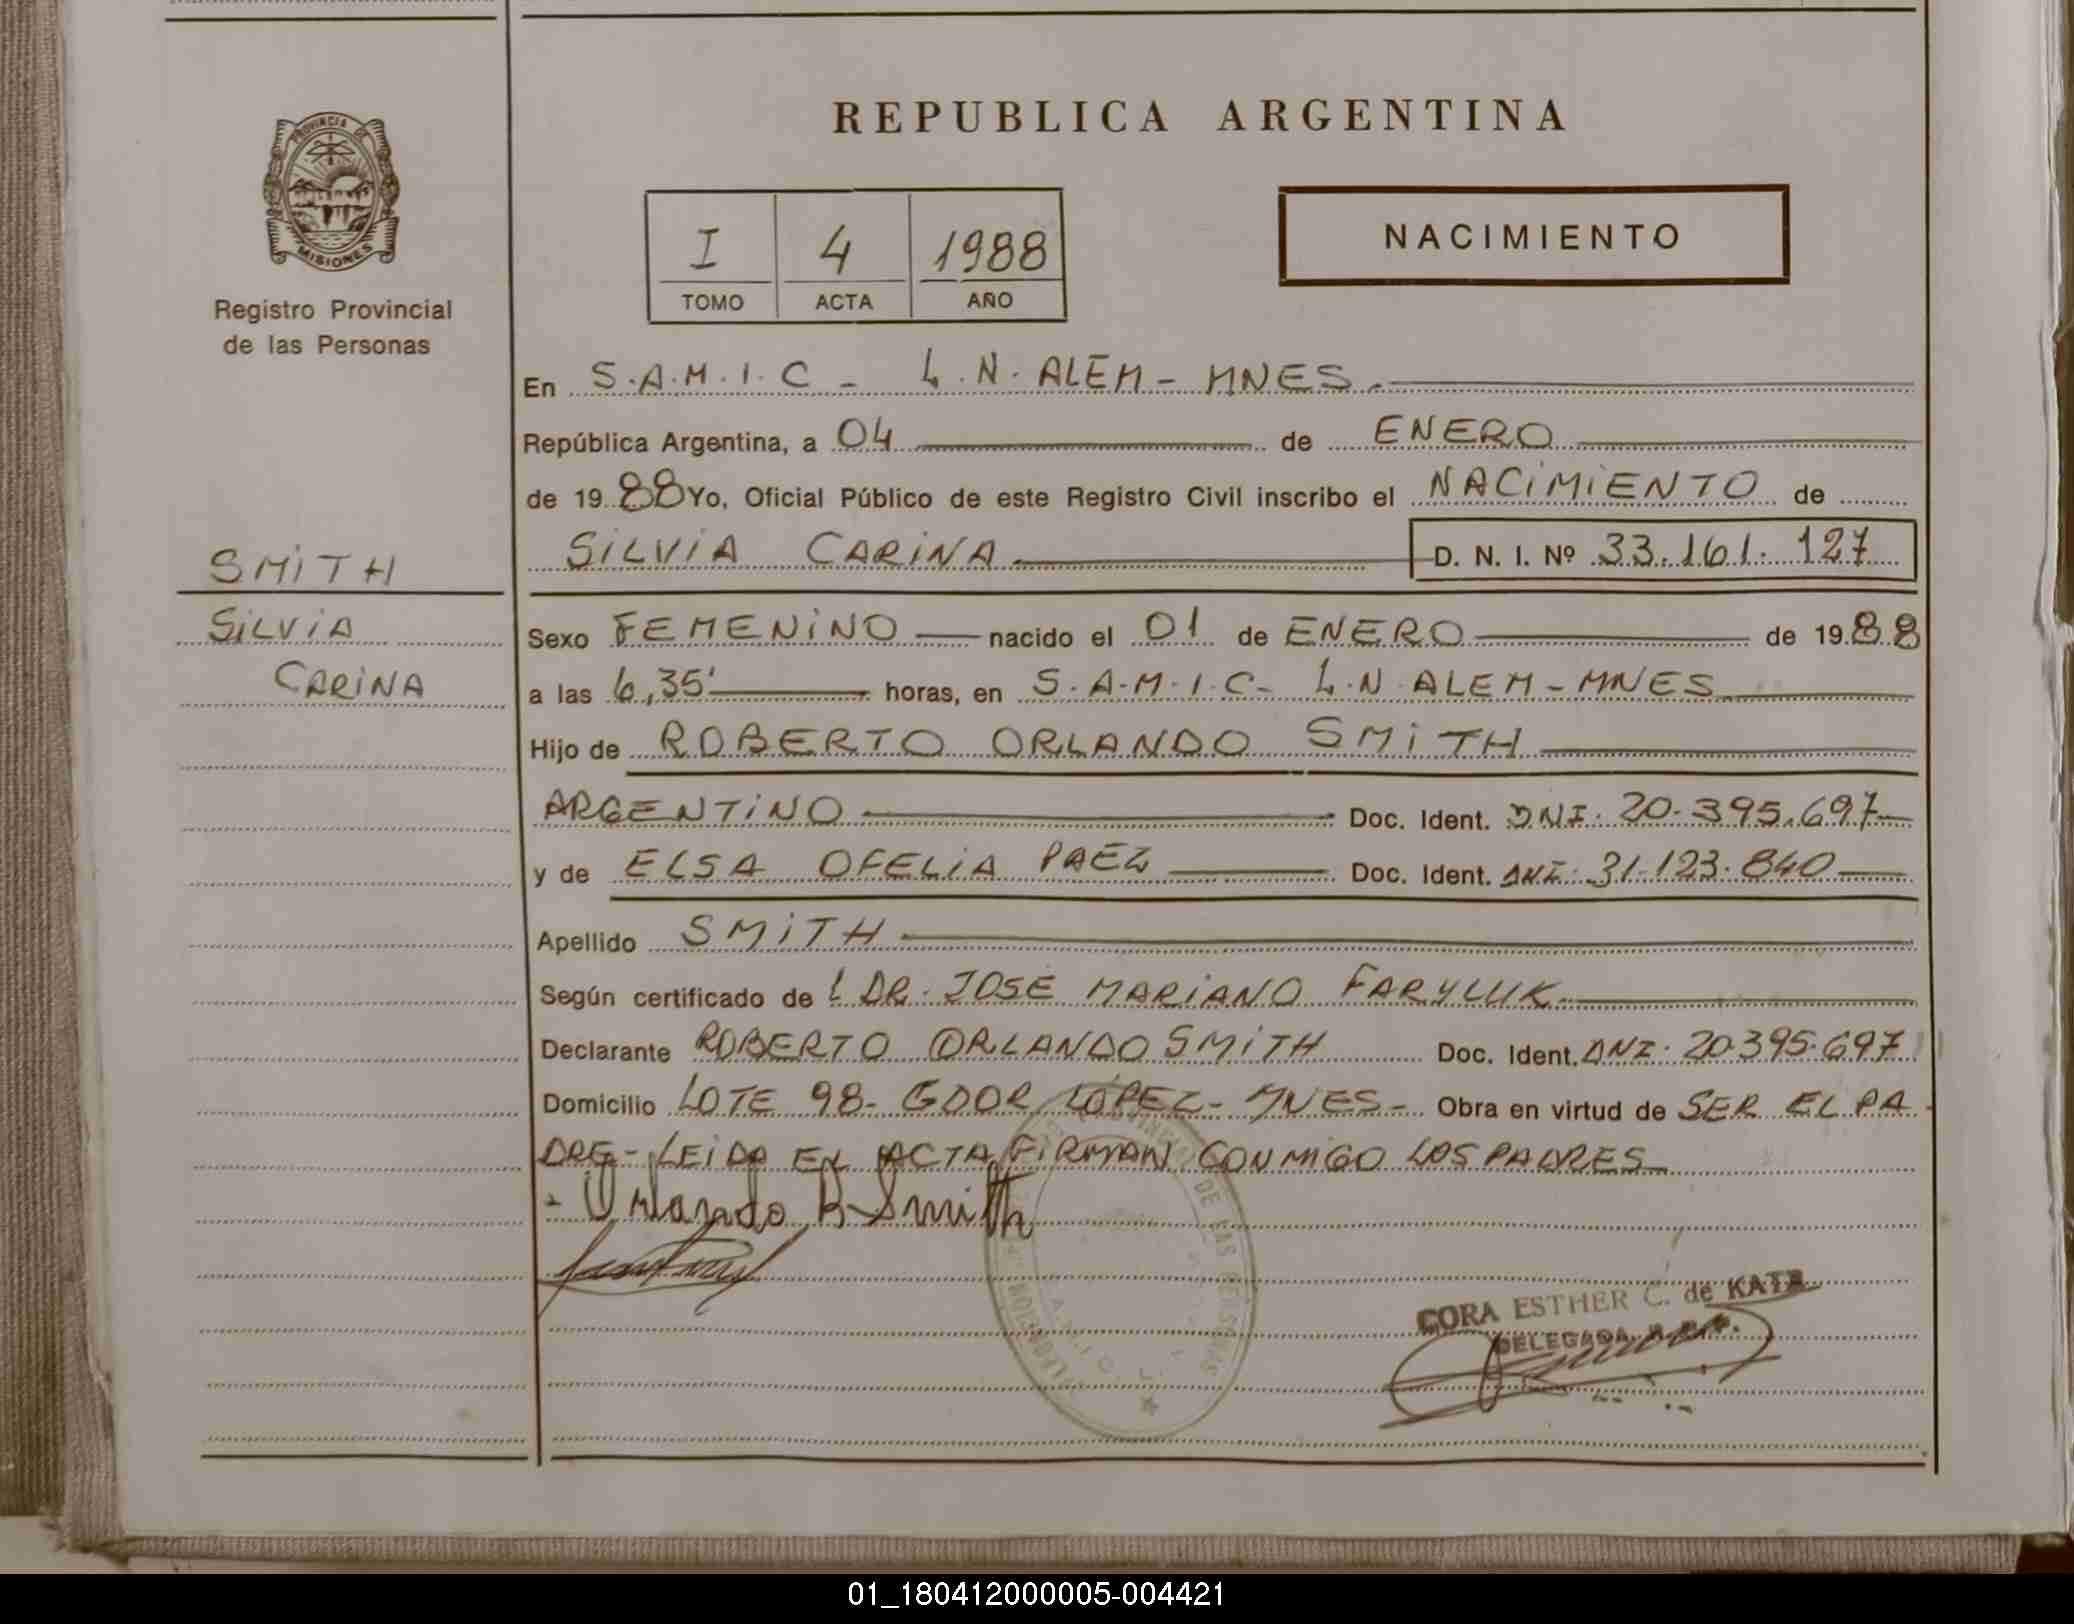 REPUBLICA ARGENTINA
PROVINCIA DE
MISIONES
Registro Provincial
de las Personas
I 4 1988
TOMO ACTA AÑO
NACIMIENTO
En S.A.M.I.C - L.N. ALEM - MNES.
República Argentina, a 04 de ENERO
de 1988 Yo, Oficial Público de este Registro Civil inscribo el NACIMIENTO de
SILVIA CARINA D. N. I. Nº 33.161.127
SMITH
SILVIA
CARINA
Sexo FEMENINO nacido el 01 de ENERO de 1988
a las 6,35' horas, en S.A.M.I.C - L.N ALEM - MNES
Hijo de ROBERTO ORLANDO SMITH
ARGENTINO Doc. Ident. DNI. 20.395.697
y de ELSA OFELIA PAEZ Doc. Ident. DNI. 31.123.840
Apellido SMITH
Según certificado de l DR. JOSE MARIANO FARYLUK
Declarante ROBERTO ORLANDO SMITH Doc. Ident. DNI. 20.395.697
Domicilio LOTE 98 - GDOR LOPEZ - MNES - Obra en virtud de SER EL PA
DRE - LEIDA EL ACTA FIRMAN CONMIGO LOS PADRES
Orlando R Smith
DE LAS PERSONAS
CORA ESTHER C. de
DELEGADA R. P. P.
01_180412000005-004421